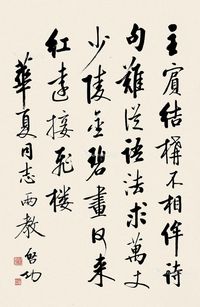 主賓結構不相侔詩
句難從語法求萬丈
少陵金碧畫来
紅遠接飛楼
華夏同志兩教 啓功